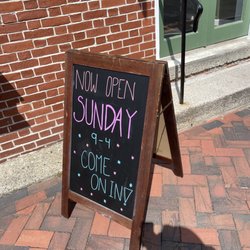 NOW OPEN
SUNDAY
9-4
COME
ON IN!